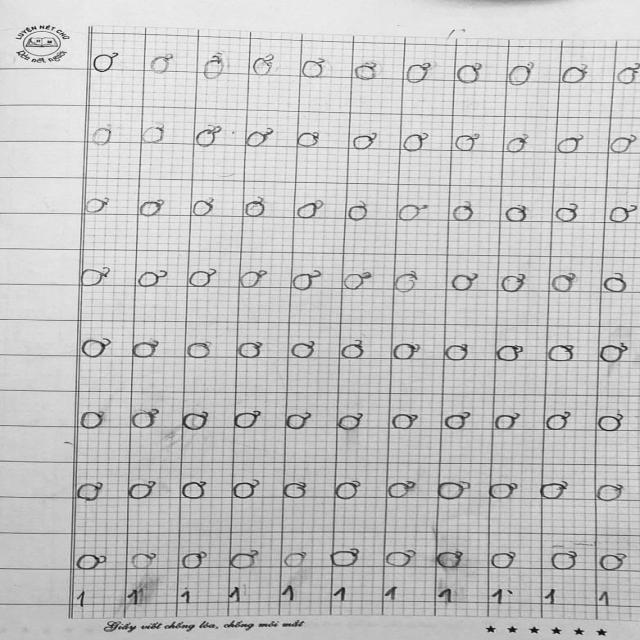 LUYỆN NÉT CHỮ
RÈN NẾT NGƯỜI
ơ ơ ơ ơ ơ ơ ơ ơ ơ ơ ơ
ơ ơ ơ ơ ơ ơ ơ ơ ơ ơ ơ
ơ ơ ơ ơ ơ ơ ơ ơ ơ ơ ơ
ơ ơ ơ ơ ơ ơ ơ ơ ơ ơ ơ
ơ ơ ơ ơ ơ ơ ơ ơ ơ ơ ơ
ơ ơ ơ ơ ơ ơ ơ ơ ơ ơ ơ
ơ ơ ơ ơ ơ ơ ơ ơ ơ ơ ơ
ơ ơ ơ ơ ơ ơ ơ ơ ơ ơ ơ
1 1 1 1 1 1 1 1 1 1 1
Giấy viết chống lóa, chống mỏi mắt